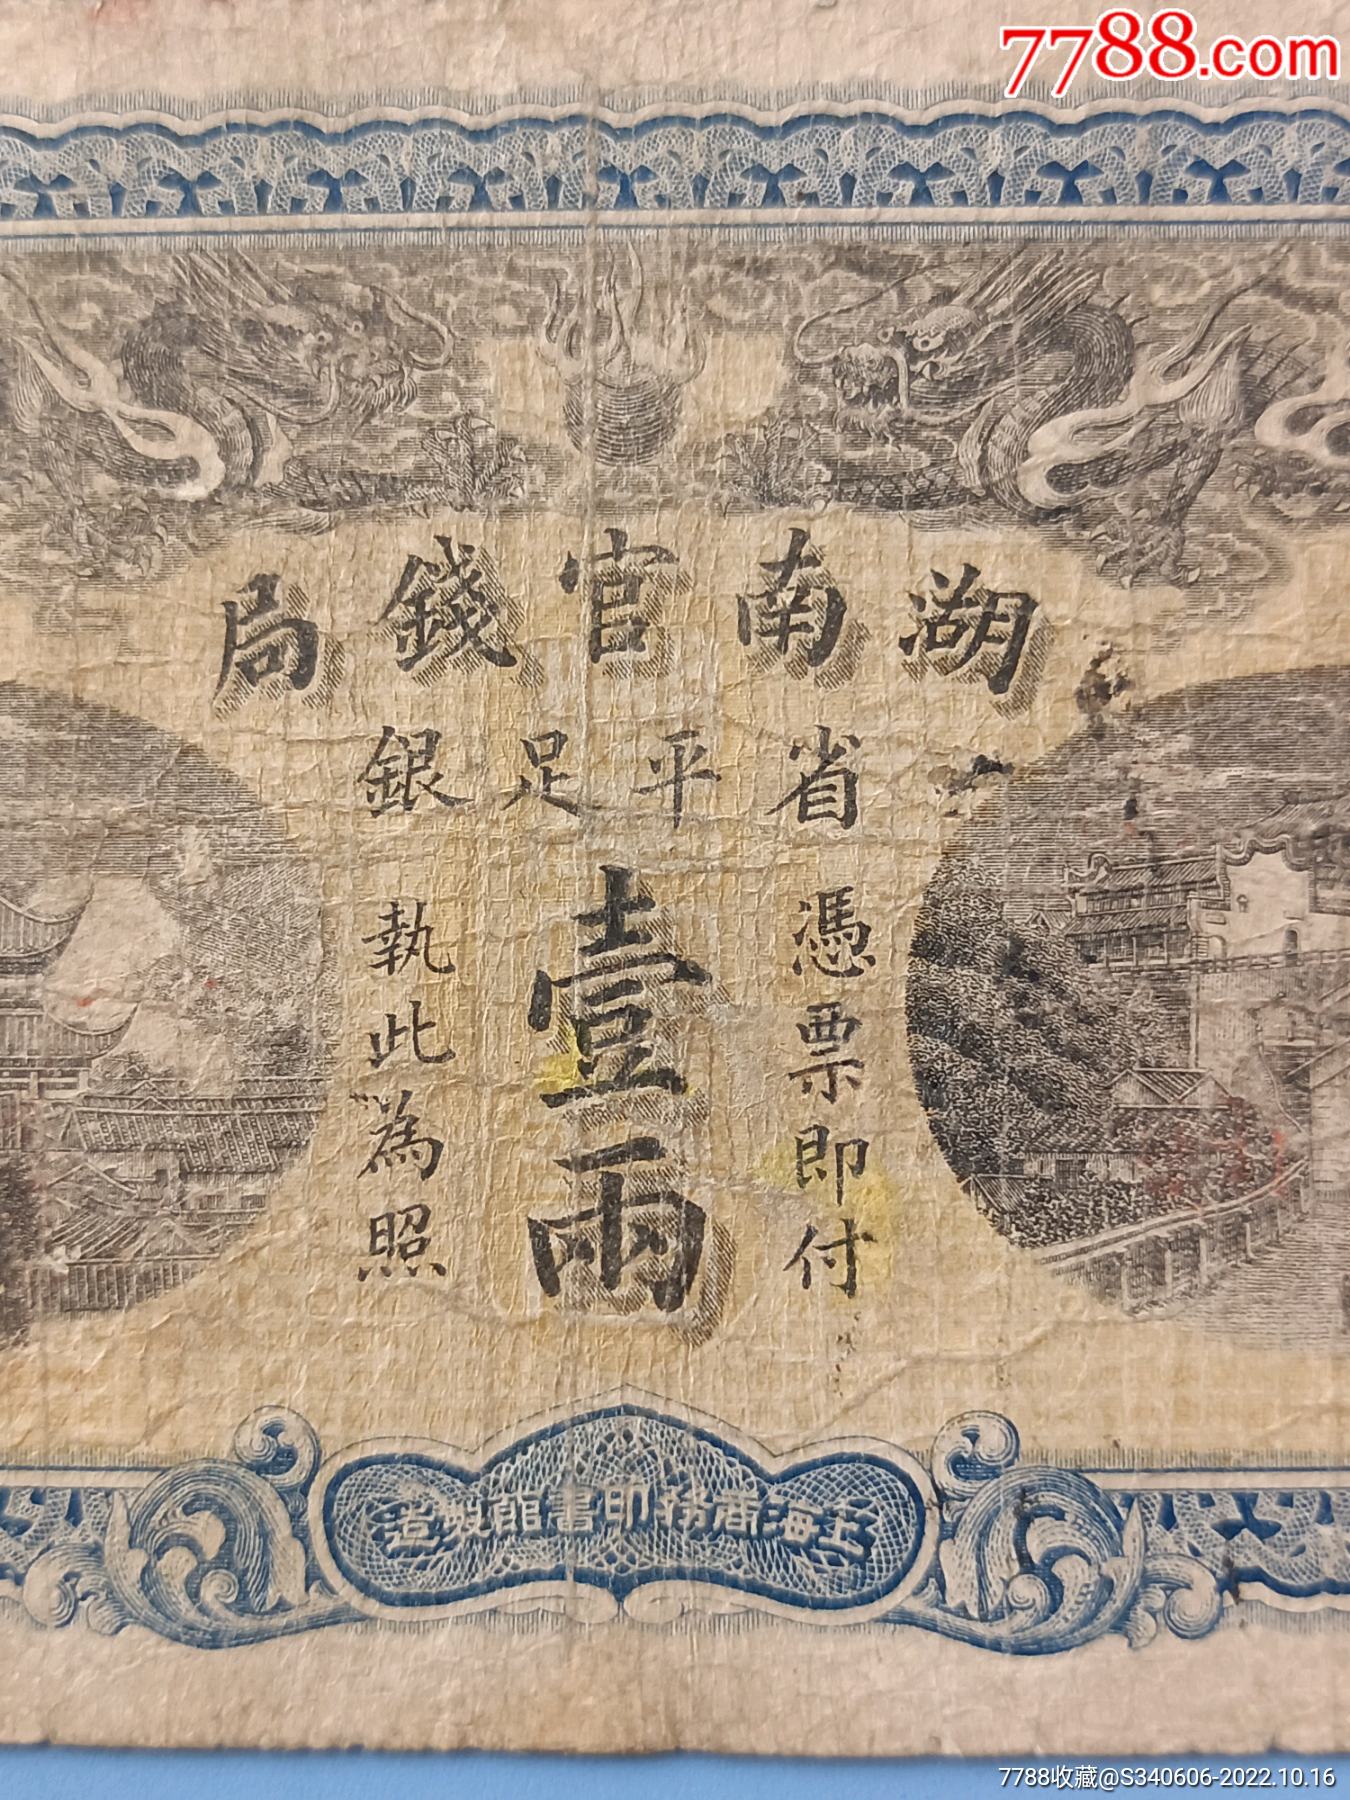 7788.com
湖南官錢局
省平足銀
憑票即付
壹兩
執此為照
上海商務印書館製造
7788收藏@S340606-2022.10.16